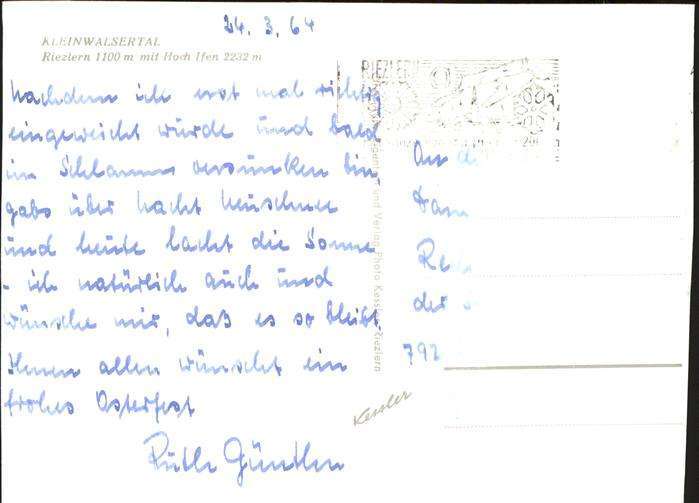 24. 3. 64
KLEINWALSERTAL
Riezlern 1100 m mit Hoch Ifen 2232 m
Nachdem ich erst mal richtig
eingeweicht wurde und bald
im Schlamm versunken bin,
gabs über Nacht Neuschnee
und heute lacht die Sonne
- ich natürlich auch und
wünsche mir, daß es so bleibt
Ihnen allen wünscht ein
frohes Osterfest
Ruth Günther
RIEZLERN
und Verlag Photo Kessler, Riezlern
Kessler
An di
Fam
Re
der
792